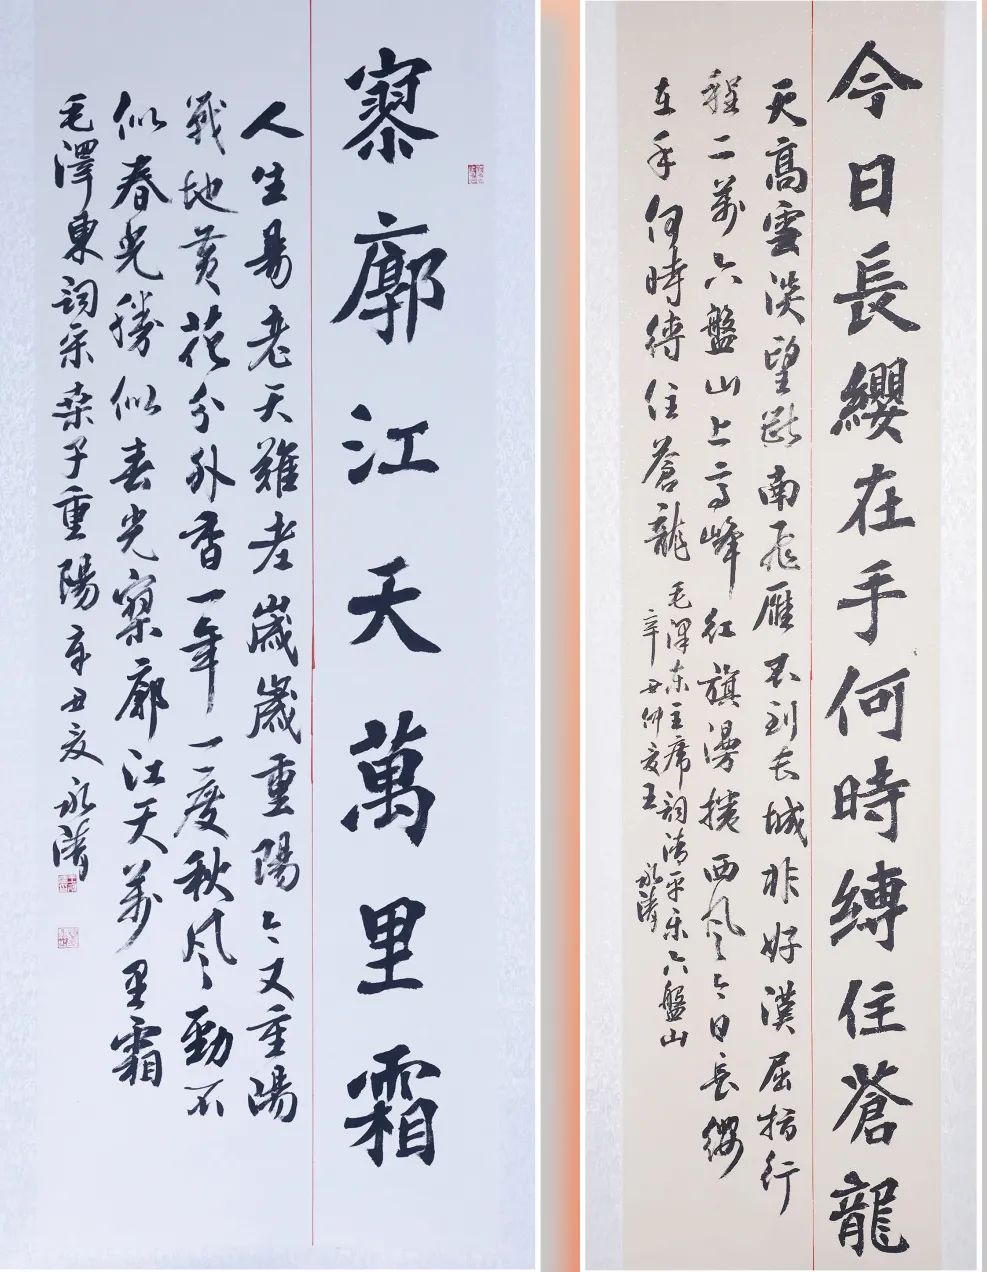 寥廓江天萬里霜
人生易老天難老歲歲重陽今又重陽
戰地黃花分外香一年一度秋風勁不
似春光勝似春光寥廓江天萬里霜
毛澤東詞采桑子重陽辛丑夏永濤
今日長纓在手何時縛住蒼龍
天高雲淡望斷南飛雁不到長城非好漢屈指行
程二萬六盤山上高峰紅旗漫捲西風今日長纓
在手何時縛住蒼龍
毛澤東主席詞清平樂六盤山
辛丑仲夏王永濤